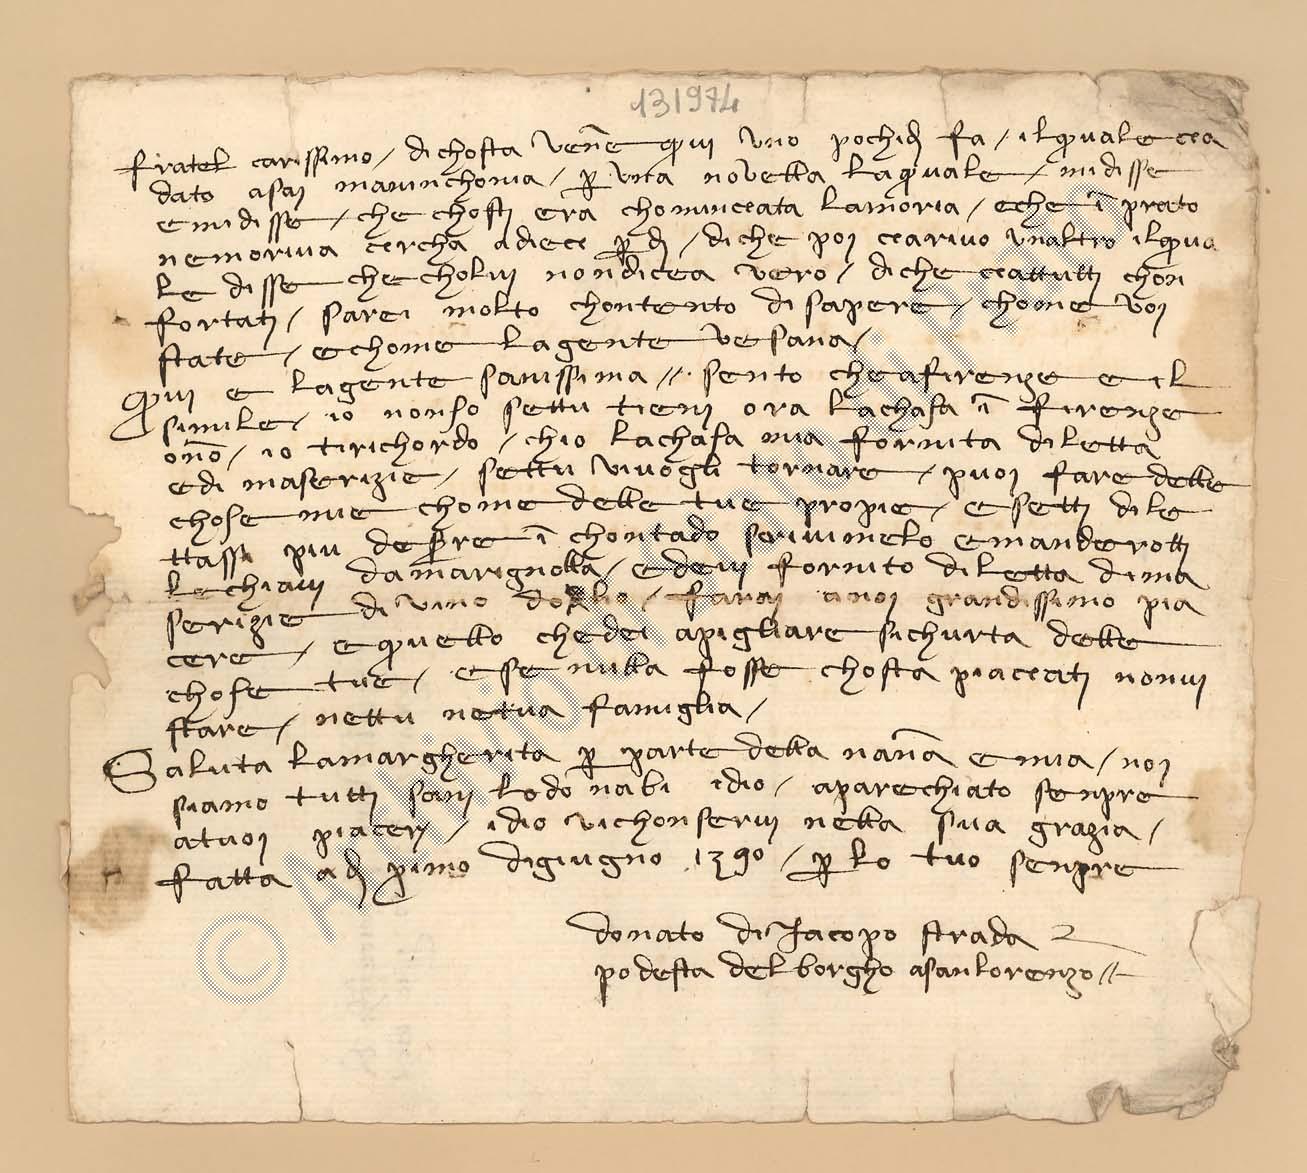 131974
fratel carissimo / di chosta venne qui uno pochi dì fa / il quale cea
dato asai maninchonia / per una novella la quale / mi disse
e mi disse / che chostì era chominceata la moria / e che in prato
ne moriva cercha a diece per dì / di che poi cearivo unaltro il qua
le disse che cholui non dicea vero / di che ceattutti chon
fortati / sarei molto chontento di sapere / chome voi
state / e chome la gente ve sana /
qui e la gente sanissima // sento che a firenze e il
simile / io non so settu tieni ora la chasa in firenze
o no / io ti richordo / chio la chasa mia fornita di letta
e di maserizie / settu vi vuogli tornare / puoi fare delle
chose mie chome delle tue propie / e setti dile
ttassi piu desere in chontado scrivimelo e manderotti
le chiavi da marignolla / e devi fornito di letta di ma
serizie di vino dolio / farai a noi grandissimo pia
cere / e quello che dei a pigliare sichurta delle
chose tue / e se nulla fosse chosta piacceati nonvi
stare / nettu ne tua famiglia /
Saluta la margherita per parte della nanna e mia / noi
siamo tutti sani lodo nabi idio / aparechiato senpre
a tuoi piaceri / idio vi chonservi nella sua grazia /
fatta a dì primo di giugno 1390 / per lo tuo senpre
donato di Jacopo strada
podesta del borgho a san lorenzo //
© Archivio di Stato di Prato